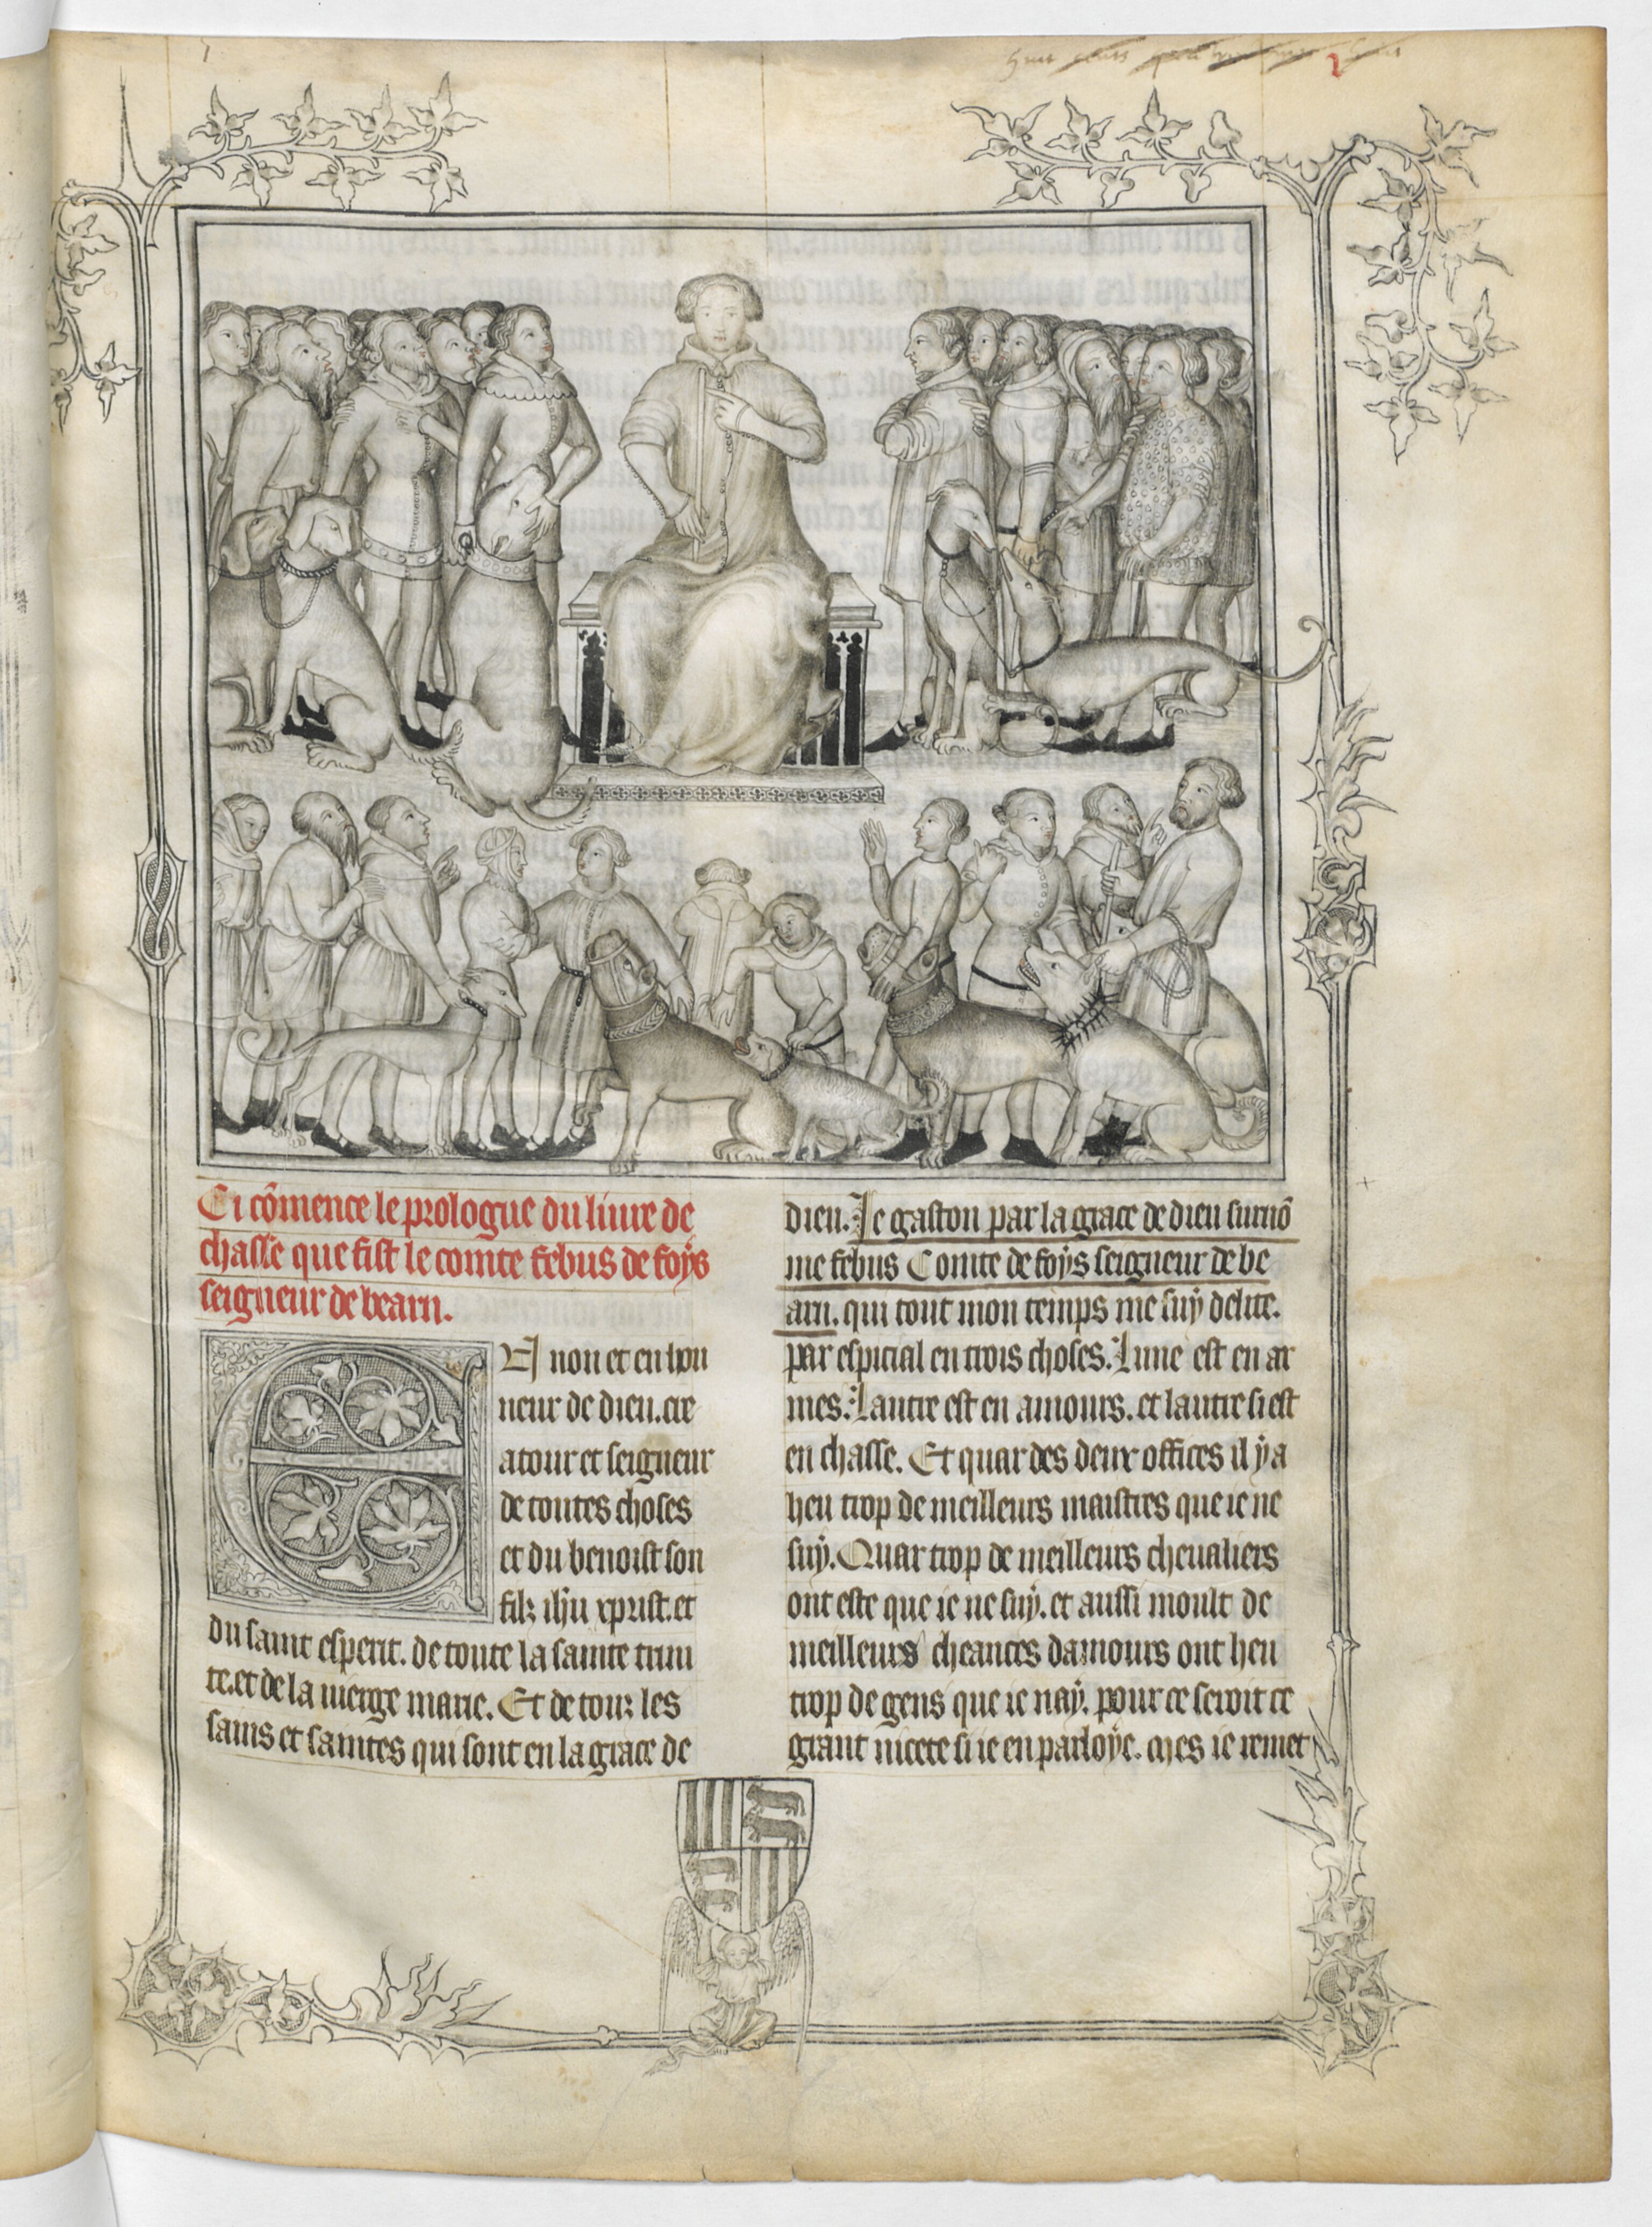 Ci cõmence le prologue du liure de
chasse que fist le comte febus de foys
seigneur de bearn.
En non et en hon
neur de dieu. cre
atour et seigneur
de toutes choses
et du benoist son
filz ihũ xprist. et
du saint esperit. de toute la sainte trini
te. et de la uierge marie. Et de touz les
sains et saintes qui sont en la grace de
dieu. Je gaston par la grace de dieu surnõ
me febus Comte de foys seigneur de be
arn. qui tout mon temps me suy delite.
par espicial en trois choses. Lune est en ar
mes. Lautre est en amours. et lautre si est
en chasse. Et quar des deux offices il y a
heu trop de meilleurs maistres que ie ne
suy. Quar trop de meilleurs cheualiers
ont este que ie ne suy. et aussi moult de
meilleurs cheances damours ont heu
trop de gens que ie nay. pour ce seroit ce
grant nicete si ie en parloye. mes ie remet